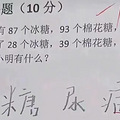 题（10 分）
有 87 个冰糖，93 个棉花糖，
了 28 个冰糖，39 个棉花糖，
小明有什么？
糖 尿 病